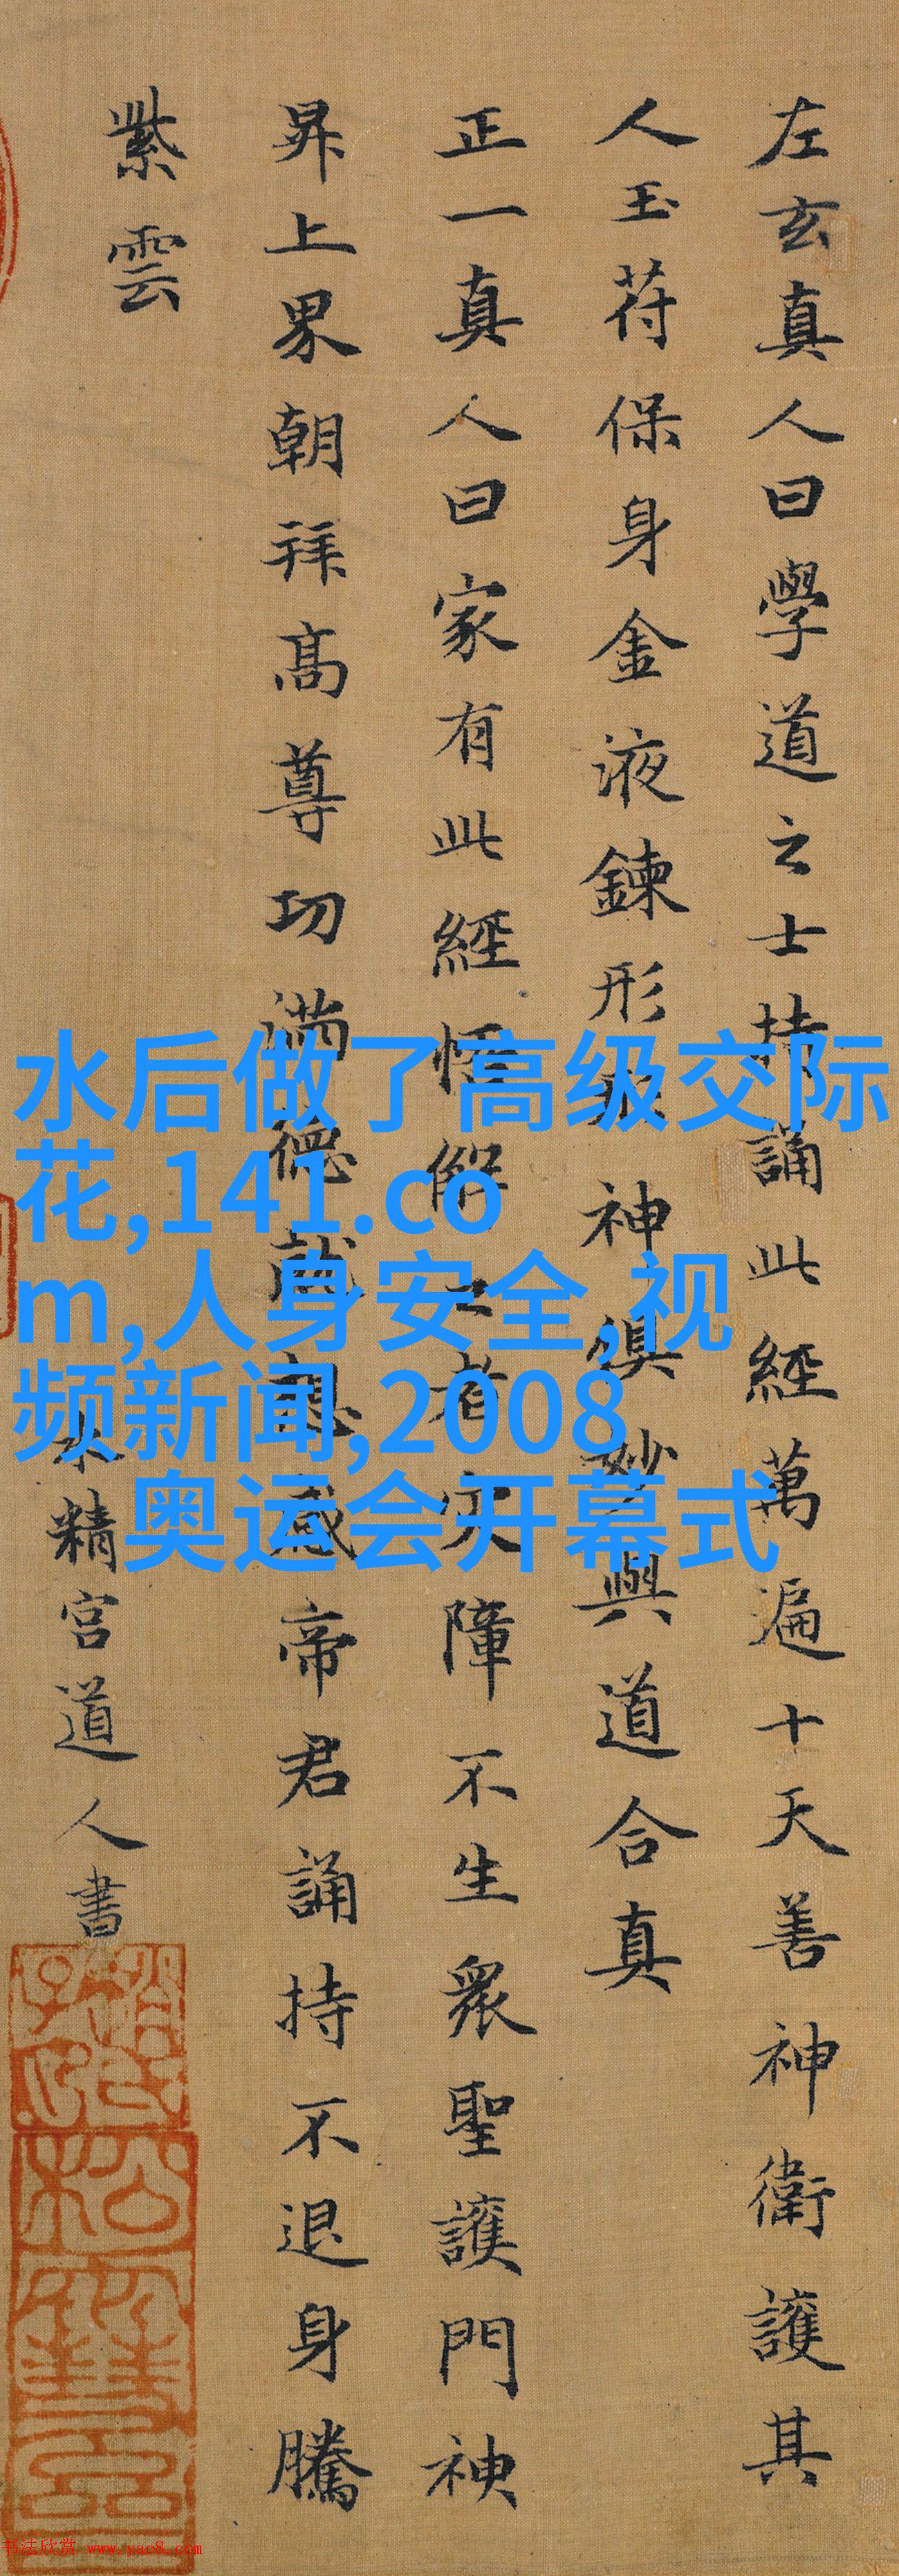 左玄真人曰學道之士持誦此經萬遍十天善神衛護其
人玉苻保身金液鍊形形神俱妙與道合真
正一真人曰家有此經悟解之者灾障不生衆聖護門神
昇上界朝拜高尊功滿德就想感帝君誦持不退身騰
紫雲
水精宫道人書
水后做了高级交际
花,141.co
m,人身安全,视
频新闻,2008
奥运会开幕式
书法欣赏 www.yac8.com